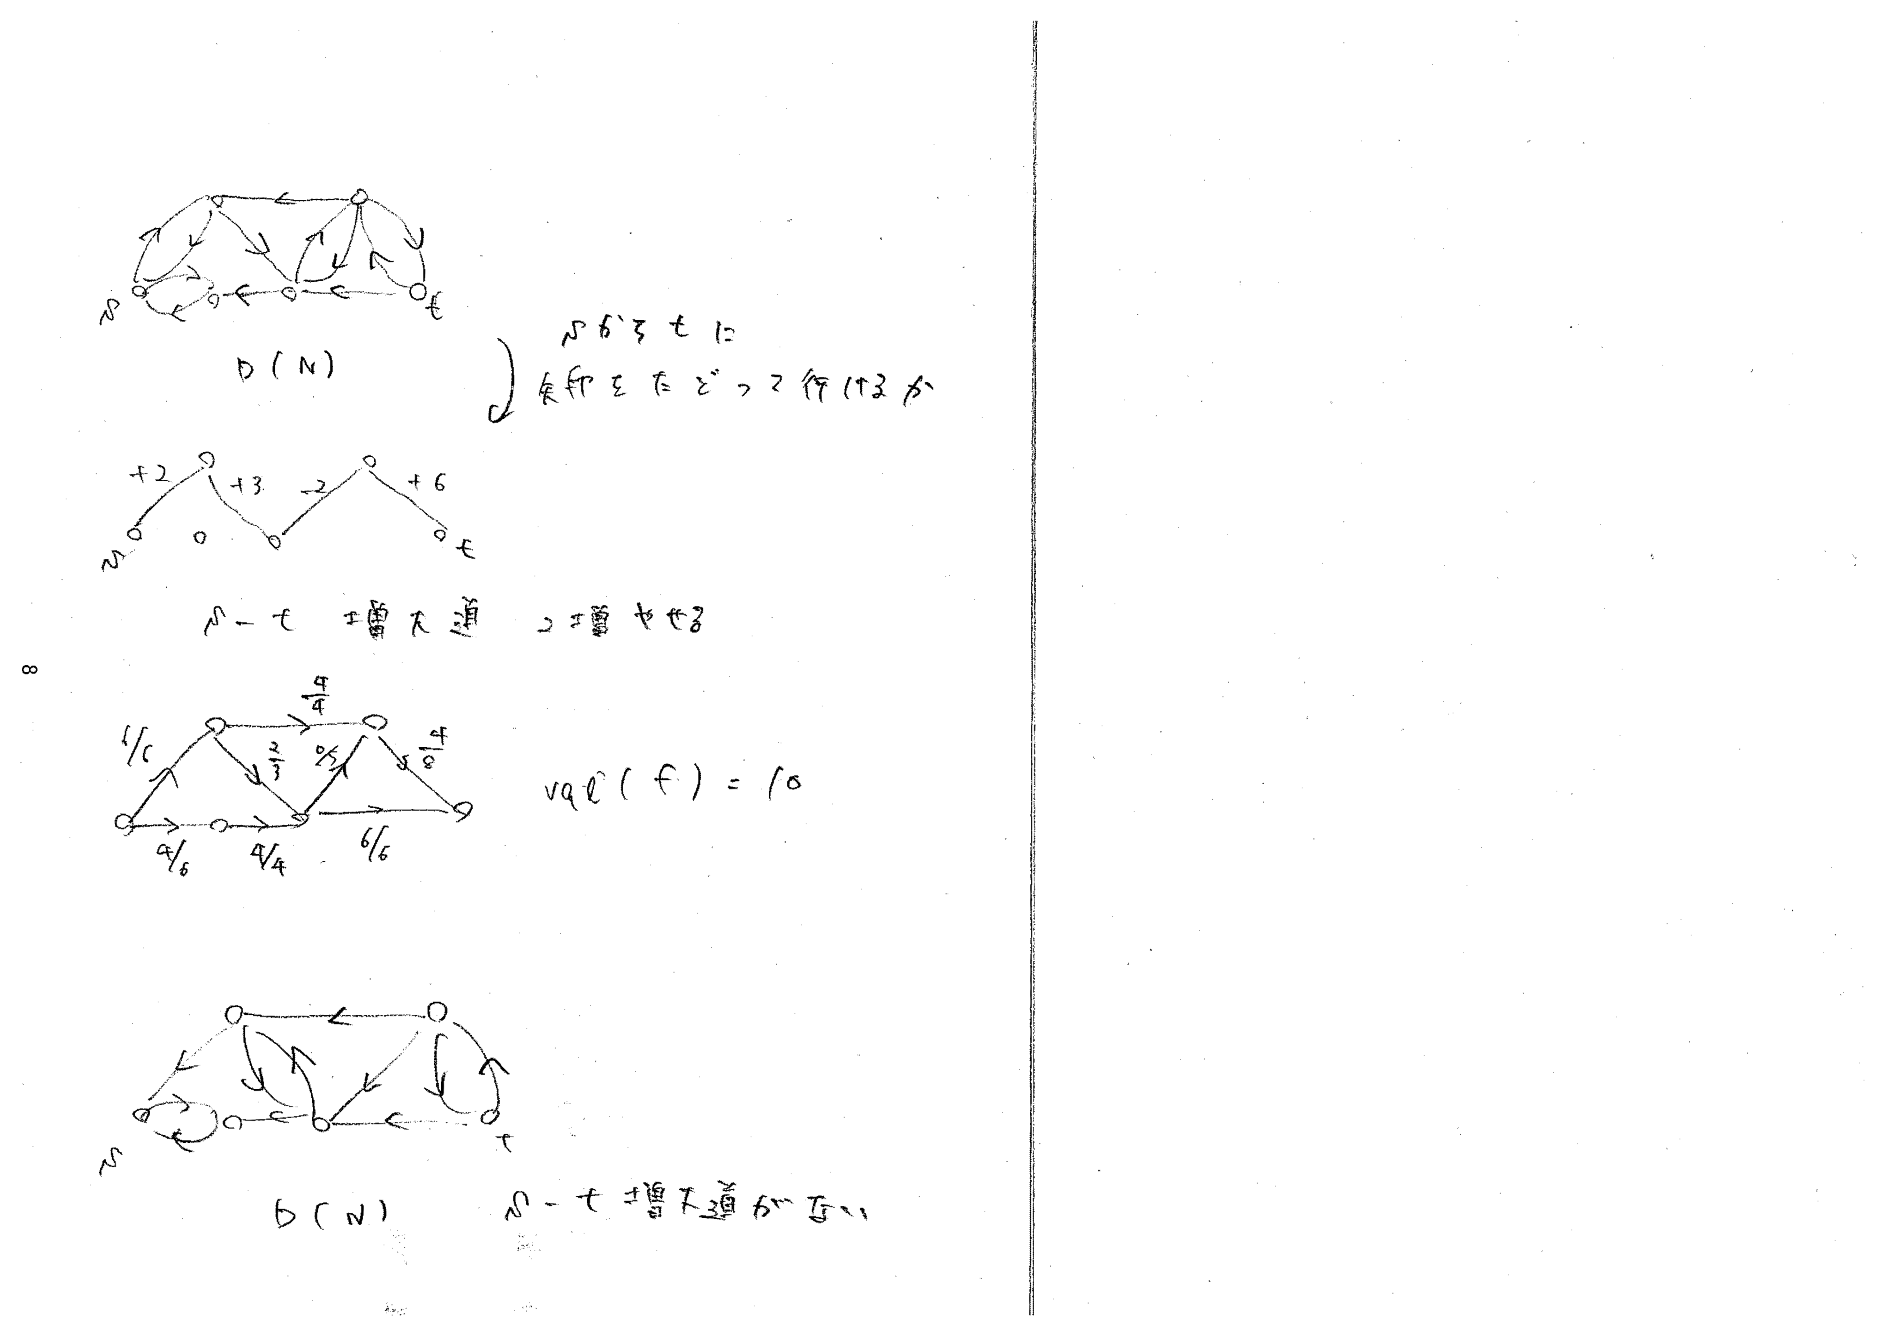 s
t
D(N)
sからtに
矢印をたどって行けるか
+2 +3 -2 +6
s
t
s-t 増大道 2増やせる
8
4/4
6/6 2/3 0/5 4/8
val(f) = 10
4/6 4/4 6/6
s
t
D(N) s-t 増大道がない